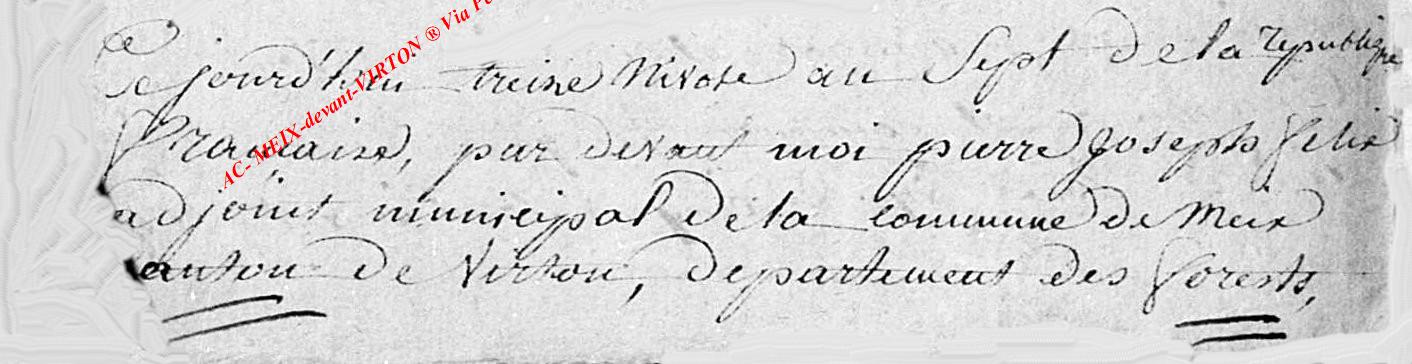 Cejourd'hui treize Nivose an Sept de la republique
française, par devant moi pierre Joseph felix
adjoint municipal de la commune de Meix
canton de Virton, departement des forests,
AC- MEIX-devant-VIRTON ® Via